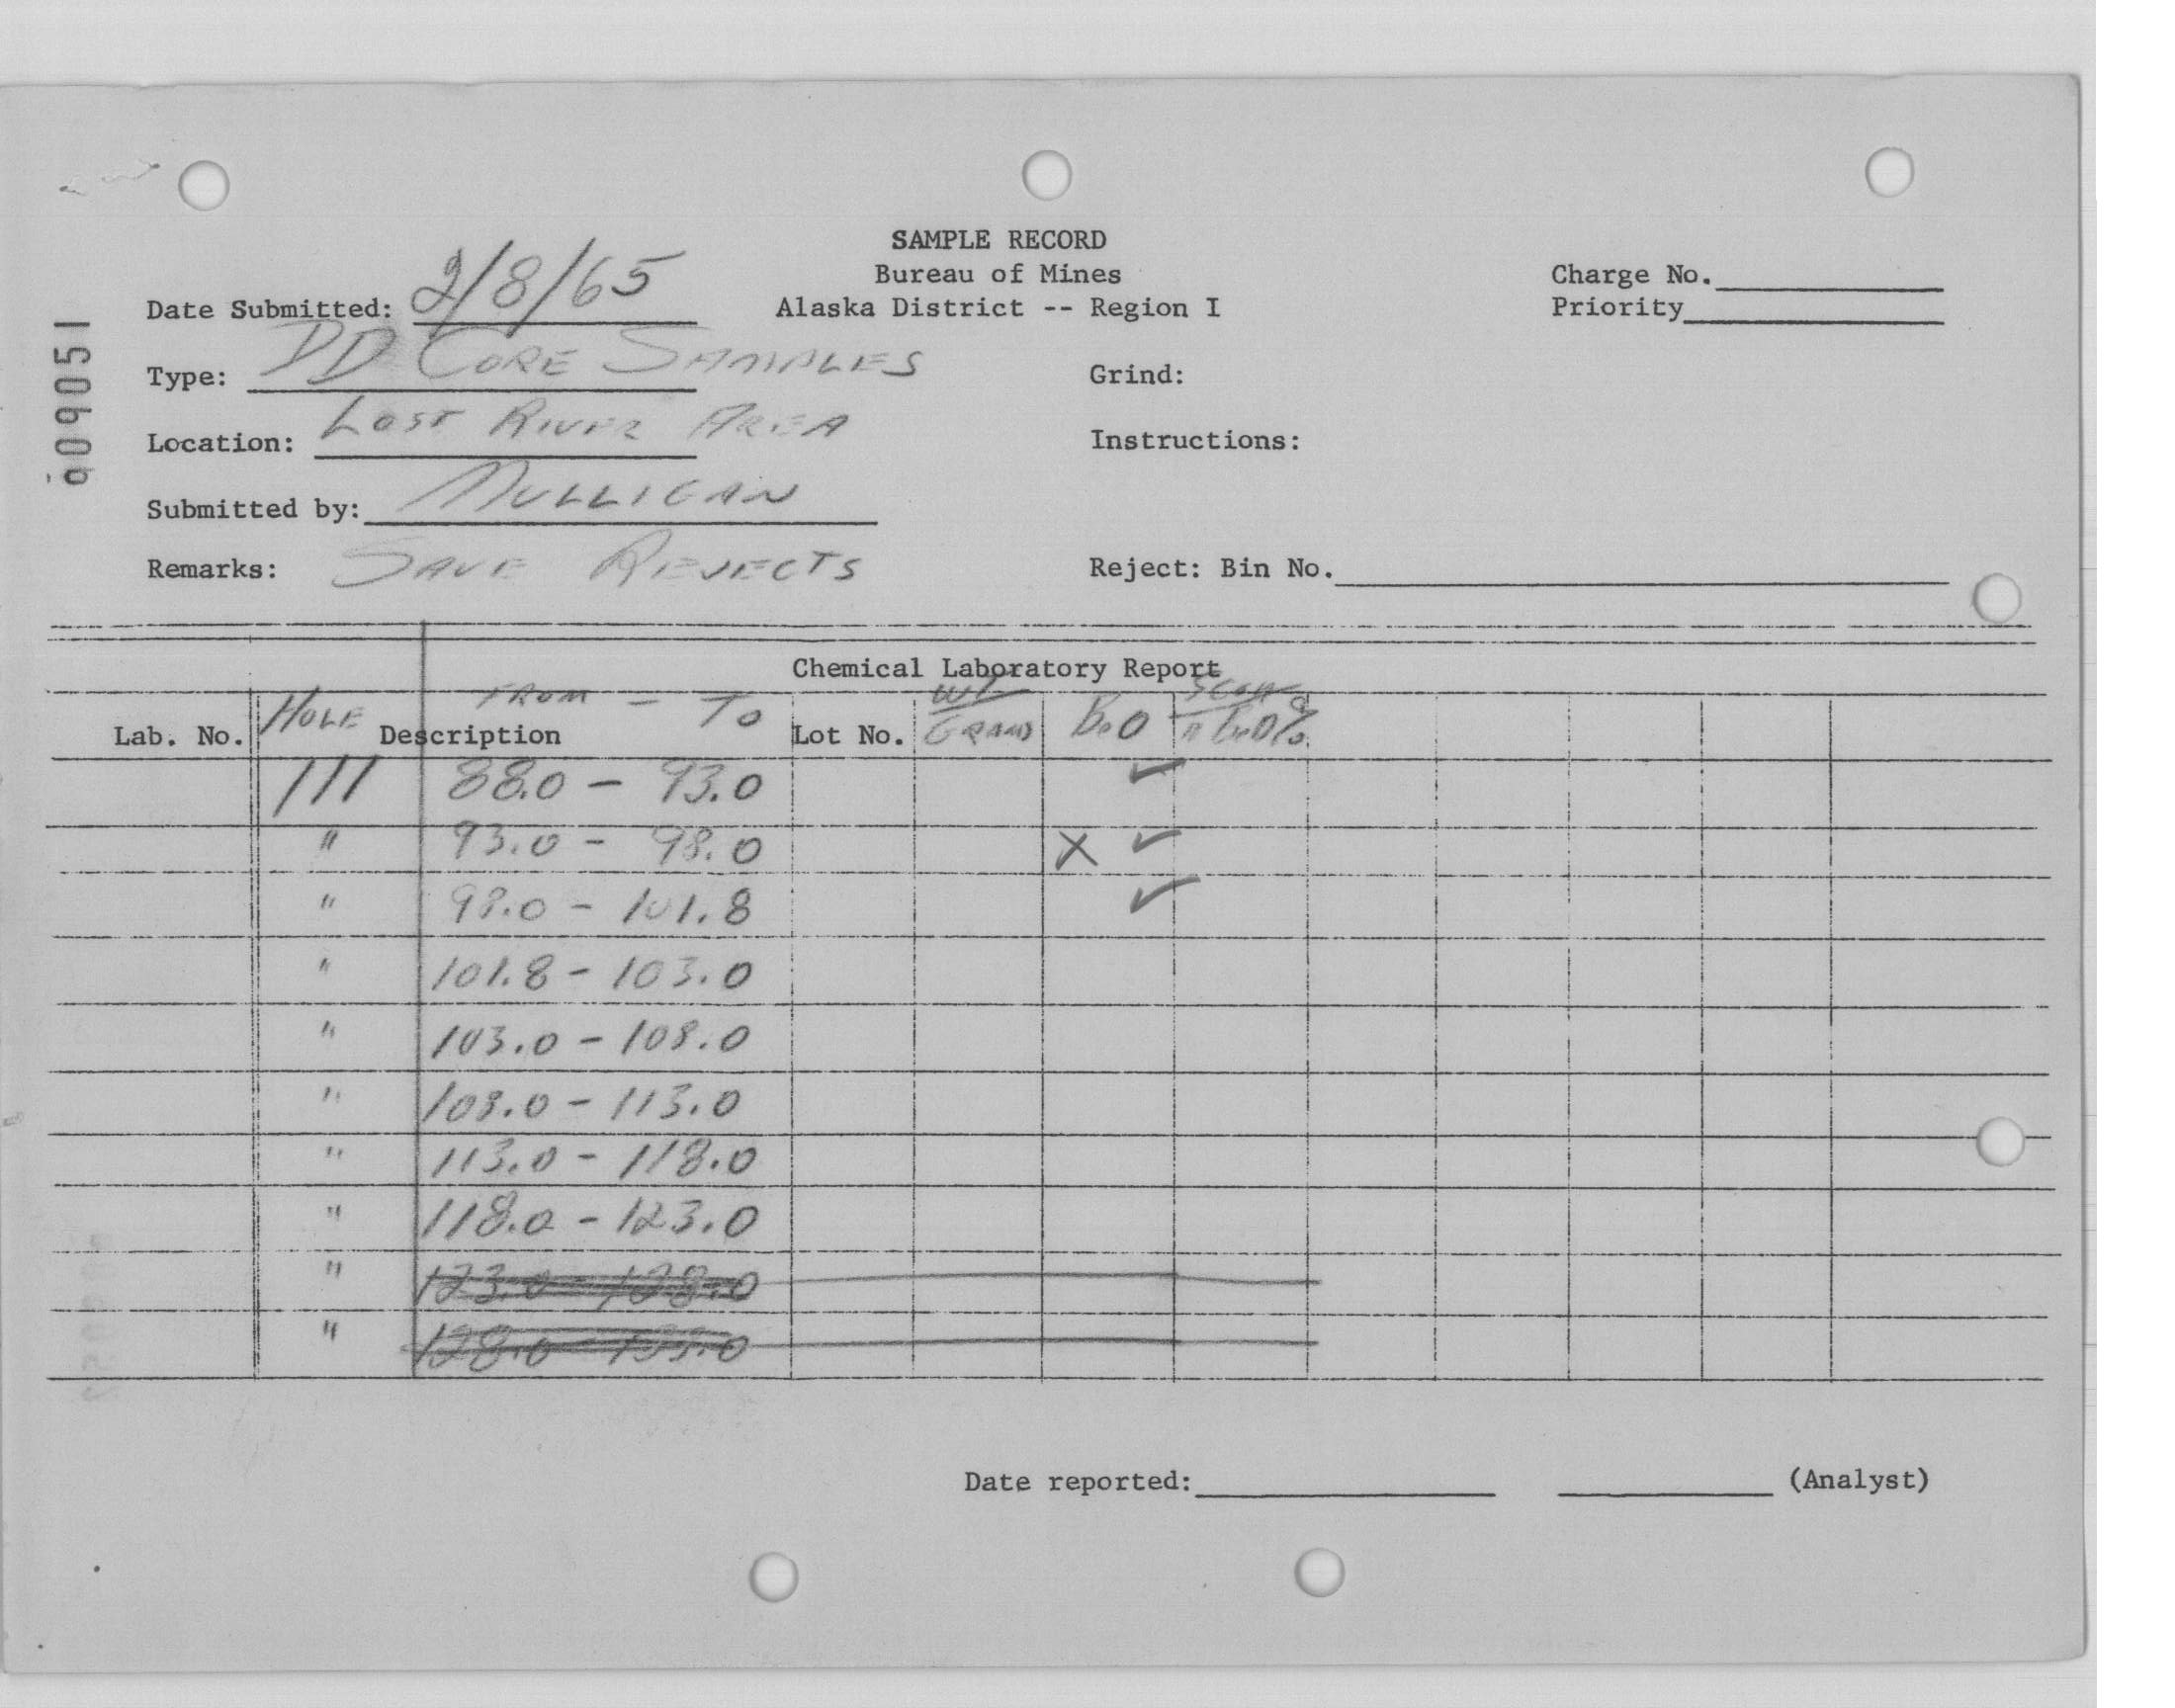 SAMPLE RECORD
Bureau of Mines
Alaska District -- Region I
Charge No.
Priority
Date Submitted: 2/8/65
Type: DD CORE SAMPLES
Grind:
Location: LOST RIVER AREA
Instructions:
Submitted by: MULLIGAN
Remarks: SAVE REJECTS
Reject: Bin No.
090951
Chemical Laboratory Report
Lab. No. HOLE Description FROM - TO Lot No. GRAMS BeO
111 88.0 - 93.0 ✓
" 93.0 - 98.0 X ✓
" 98.0 - 101.8 ✓
" 101.8 - 103.0
" 103.0 - 108.0
" 108.0 - 113.0
" 113.0 - 118.0
" 118.0 - 123.0
" 123.0 - 128.0
" 128.0 - 133.0
Date reported: (Analyst)